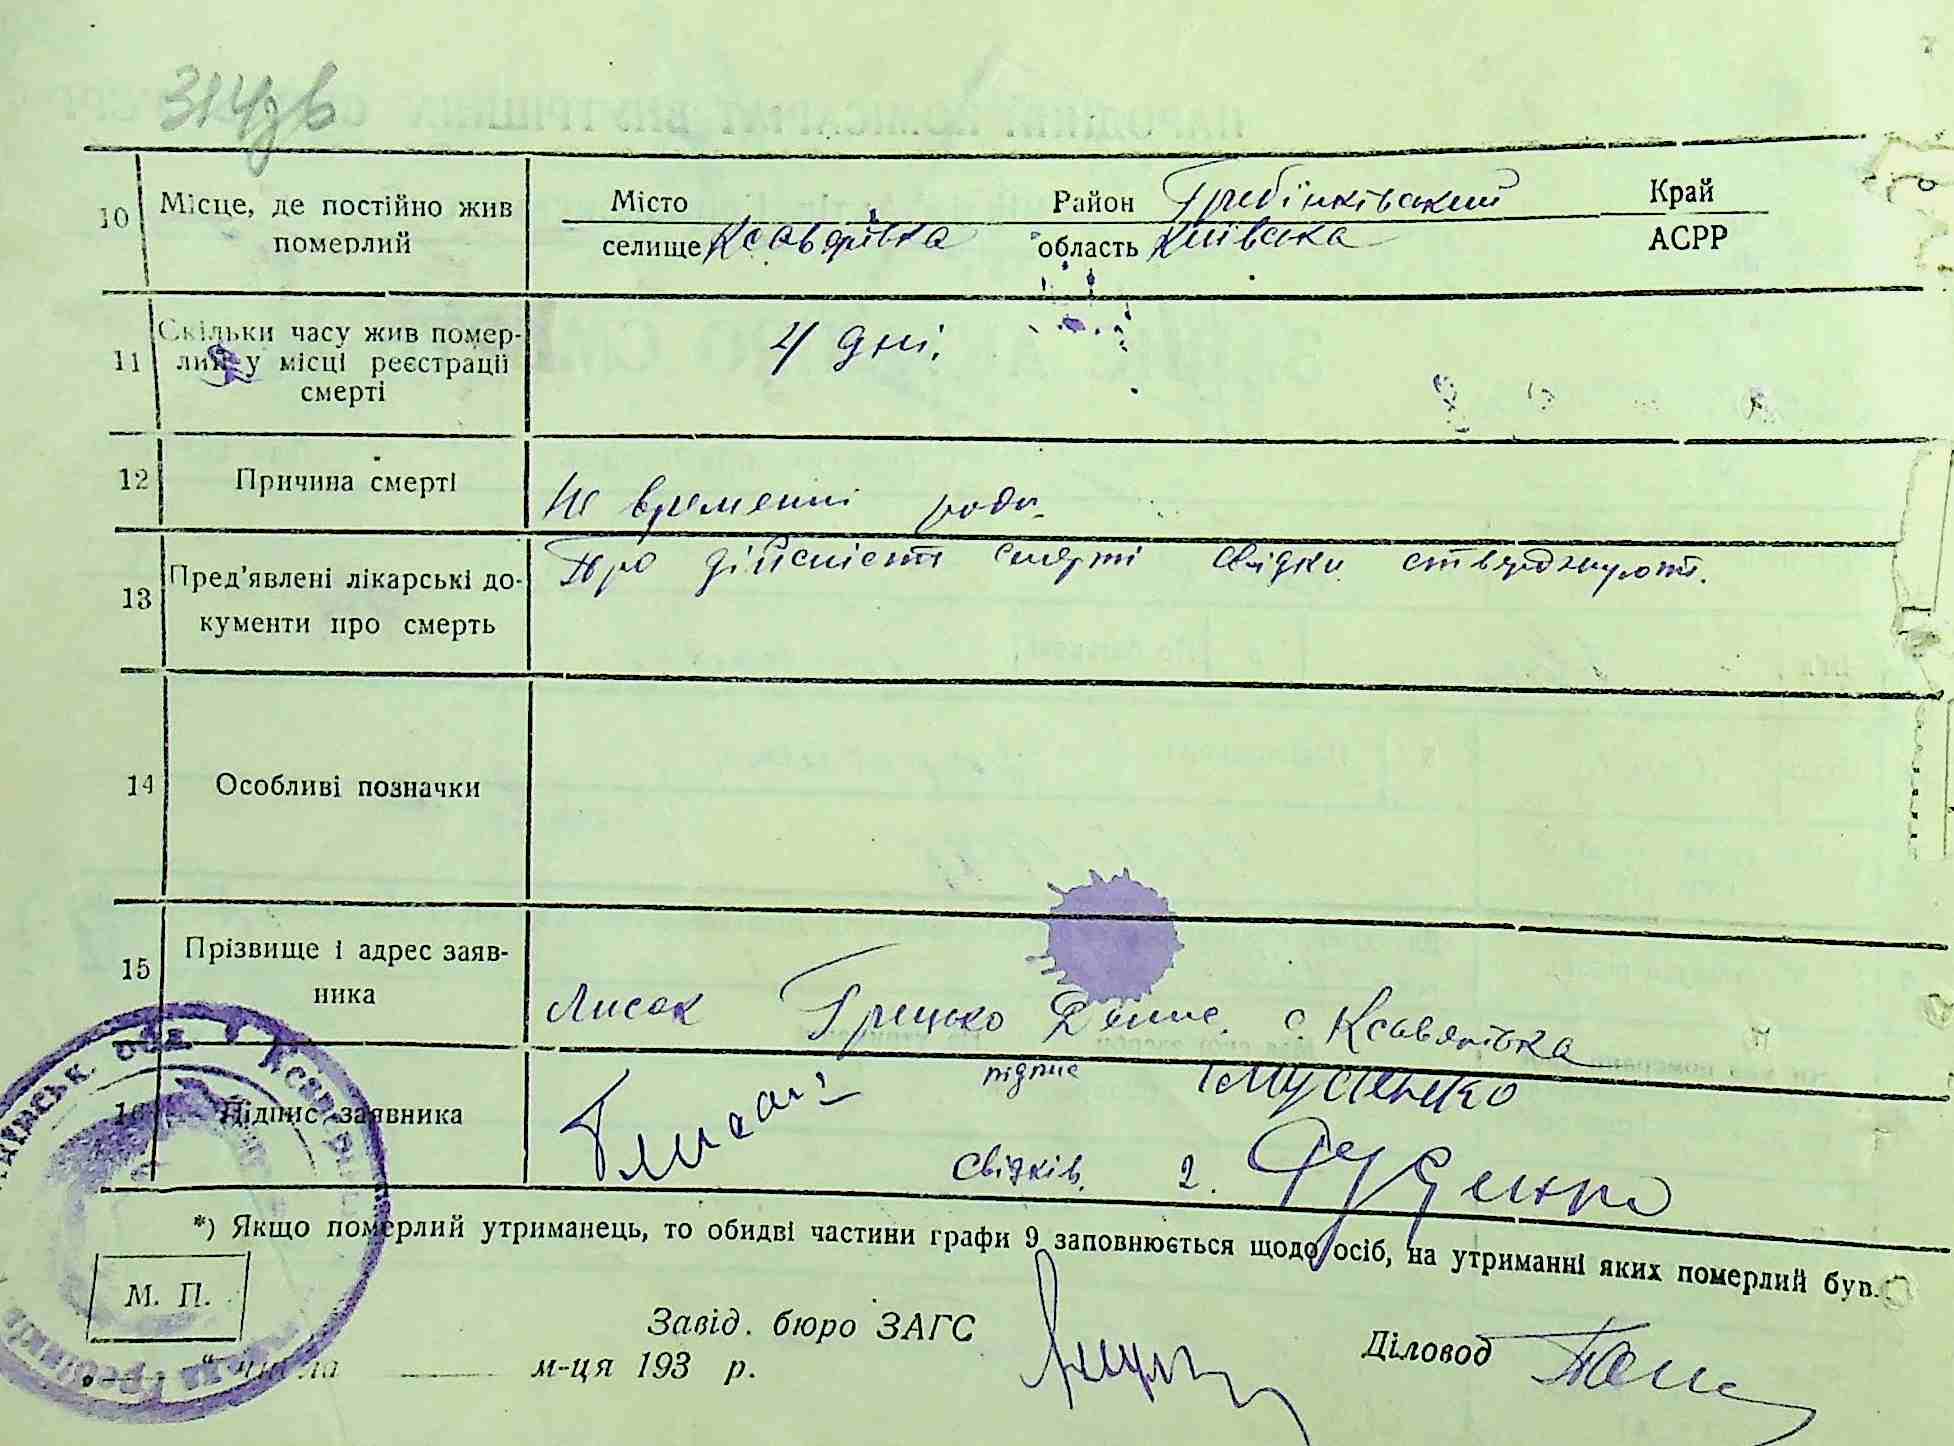 314зв
10 Місце, де постійно жив померлий
Місто Район Гребінківський Край
селище Ксавярівка область Київська АСРР
11 Скільки часу жив помер-
лий у місці реєстрації
смерті
4 дні.
12 Причина смерті
Не временні роди.
13 Пред'явлені лікарські до-
кументи про смерть
Про дійсність смерті свідки стверджують.
14 Особливі позначки
15 Прізвище і адрес заяв-
ника
Лисак Грицько Денис. с Ксавярівка
16 Підпис заявника
підпис 1 Мусієнко
свідків. 2. Руденко
*) Якщо померлий утриманець, то обидві частини графи 9 заповнюється щодо осіб, на утриманні яких померлий був.
М. П.
Завід. бюро ЗАГС
Діловод
" числа м-ця 193 р.